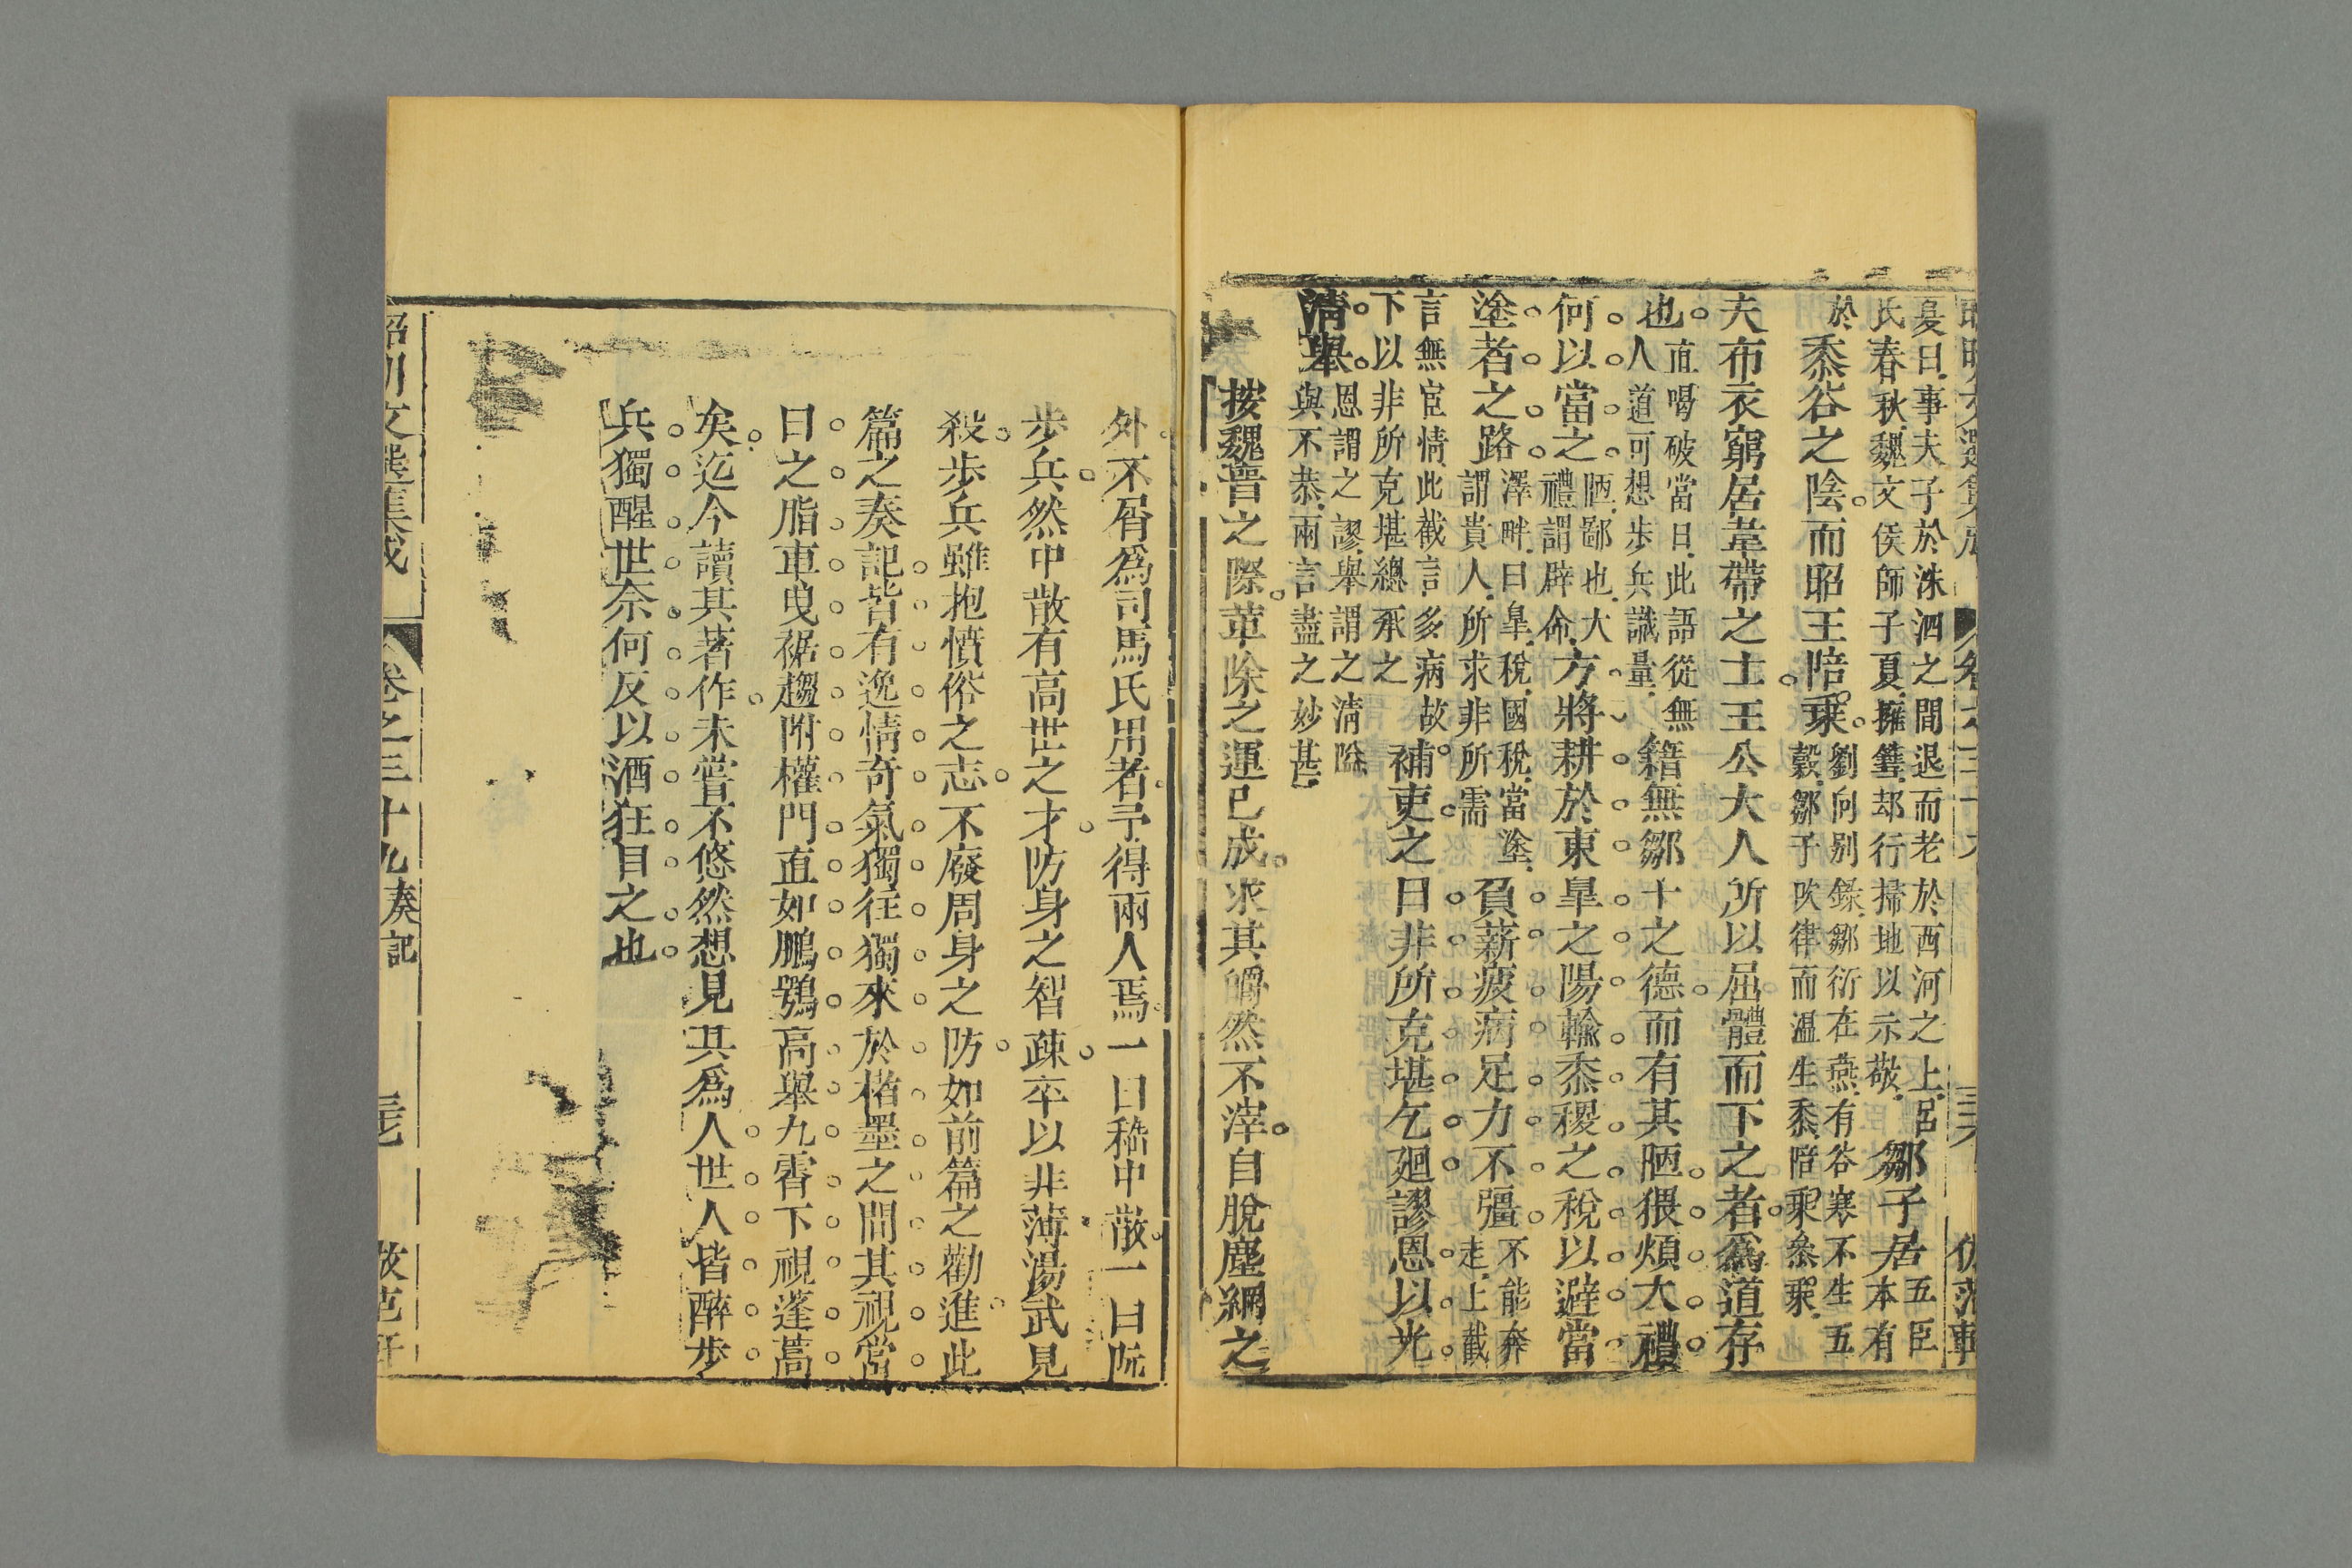 夏曰事夫子於洙泗之間退而老於西河之上呂
氏春秋魏文侯師子夏擁篲却行掃地以示敬
鄒子居
五臣
本有
於
黍谷之陰而昭王陪乘
劉向别錄鄒衍在燕有谷寒不生五
穀鄒子吹律而温生黍陪乘叅乘
夫布衣窮居韋帶之士王公大人所以屈體而下之者為道存
也
直喝破當日此語從無
人道可想步兵識量
籍無鄒卜之德而有其陋猥煩大禮
何以當之
陋鄙也大
禮謂辟命
方將耕於東皐之陽輸黍稷之稅以避當
塗者之路
澤畔曰皐稅國稅當塗
謂貴人所求非所需
負薪疲病足力不彊
不能奔
走上截
言無宦情此截言多病故
下以非所克堪總承之
補吏之日非所克堪乞廻謬恩以光
清舉
恩謂之謬舉謂之清隘
與不恭兩言盡之妙甚
按魏晉之際革除之運已成求其皭然不滓自脫塵網之
外不屑為司馬氏用者予得兩人焉一曰嵇中散一曰阮
步兵然中散有高世之才防身之智疎卒以非薄湯武見
殺步兵雖抱憤俗之志不廢周身之防如前篇之勸進此
篇之奏記皆有逸情奇氣獨往獨來於楮墨之間其視當
日之脂車曳裾趨附權門直如鵬鶚高舉九霄下視蓬蒿
矣迄今讀其著作未嘗不悠然想見其為人世人皆醉步
兵獨醒世奈何反以酒狂目之也
昭明文選集成
卷之三十九奏記